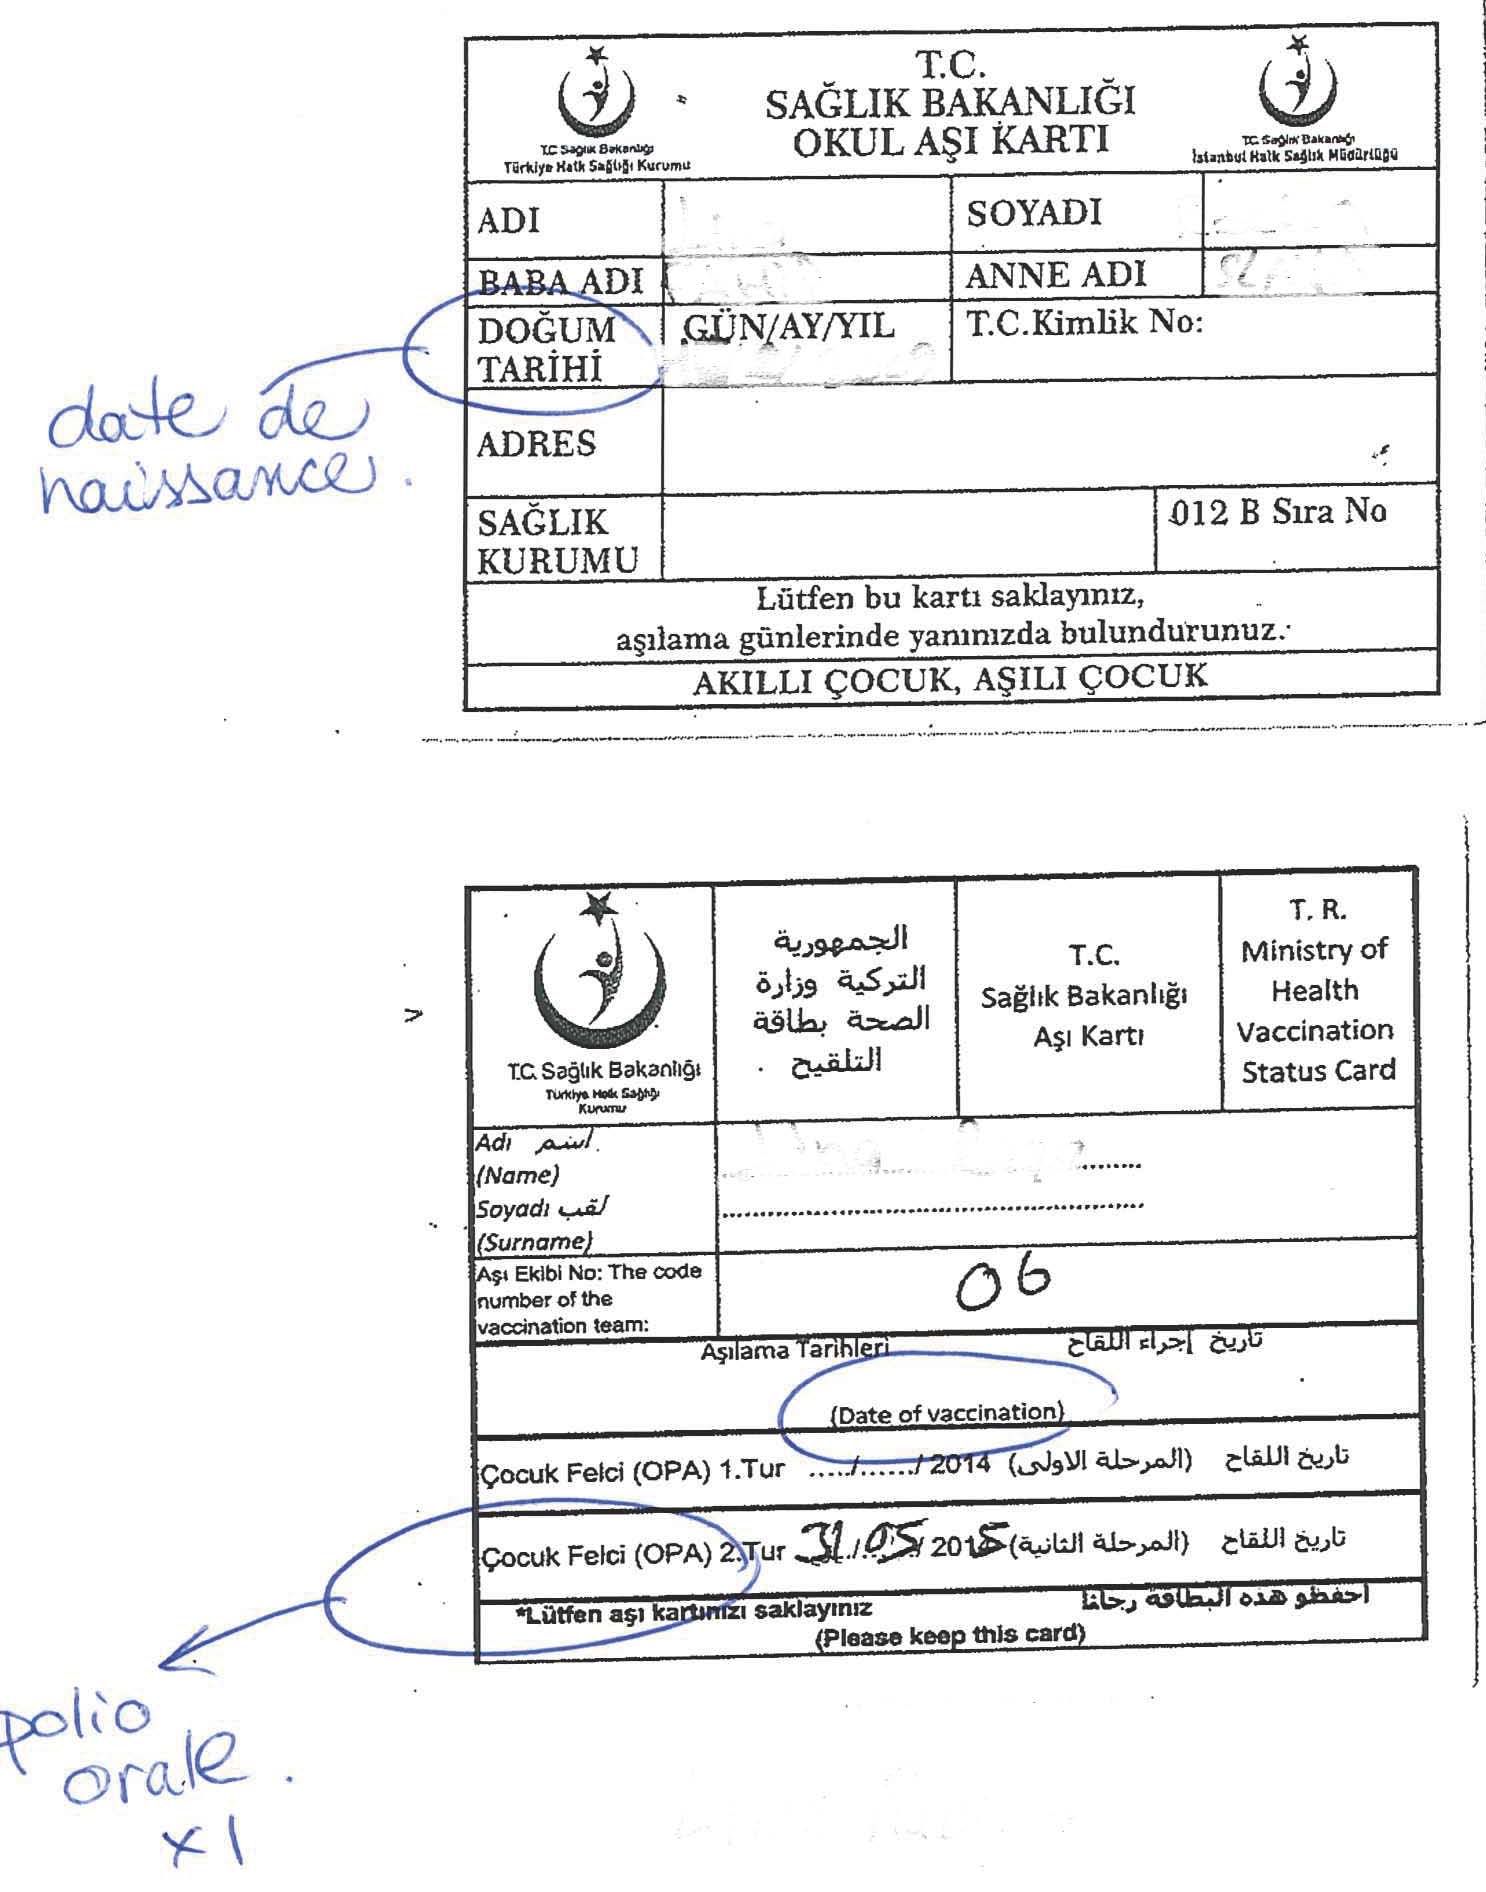 T.C.
SAĞLIK BAKANLIĞI
OKUL AŞI KARTI
T.C. Sağlık Bakanlığı
Türkiye Halk Sağlığı Kurumu
T.C. Sağlık Bakanlığı
İstanbul Halk Sağlık Müdürlüğü
ADI
SOYADI
BABA ADI
ANNE ADI
DOĞUM TARİHİ
GÜN/AY/YIL
T.C.Kimlik No:
date de
naissance.
ADRES
SAĞLIK
KURUMU
012 B Sıra No
Lütfen bu kartı saklayınız,
aşılama günlerinde yanınızda bulundurunuz.
AKILLI ÇOCUK, AŞILI ÇOCUK
T.C. Sağlık Bakanlığı
Türkiye Halk Sağlığı
Kurumu
الجمهورية
التركية وزارة
الصحة بطاقة
التلقيح
T.C.
Sağlık Bakanlığı
Aşı Kartı
T. R.
Ministry of
Health
Vaccination
Status Card
Adı اسم
(Name)
Soyadı لقب
(Surname)
Aşı Ekibi No: The code
number of the
vaccination team:
06
Aşılama Tarihleri تاريخ إجراء اللقاح
(Date of vaccination)
Çocuk Felci (OPA) 1.Tur ...../....../ 2014 (المرحلة الاولى) تاريخ اللقاح
Çocuk Felci (OPA) 2.Tur 31/05/ 2015 (المرحلة الثانية) تاريخ اللقاح
*Lütfen aşı kartınızı saklayınız احفظو هذه البطاقة رجانا
(Please keep this card)
polio
orale.
x1